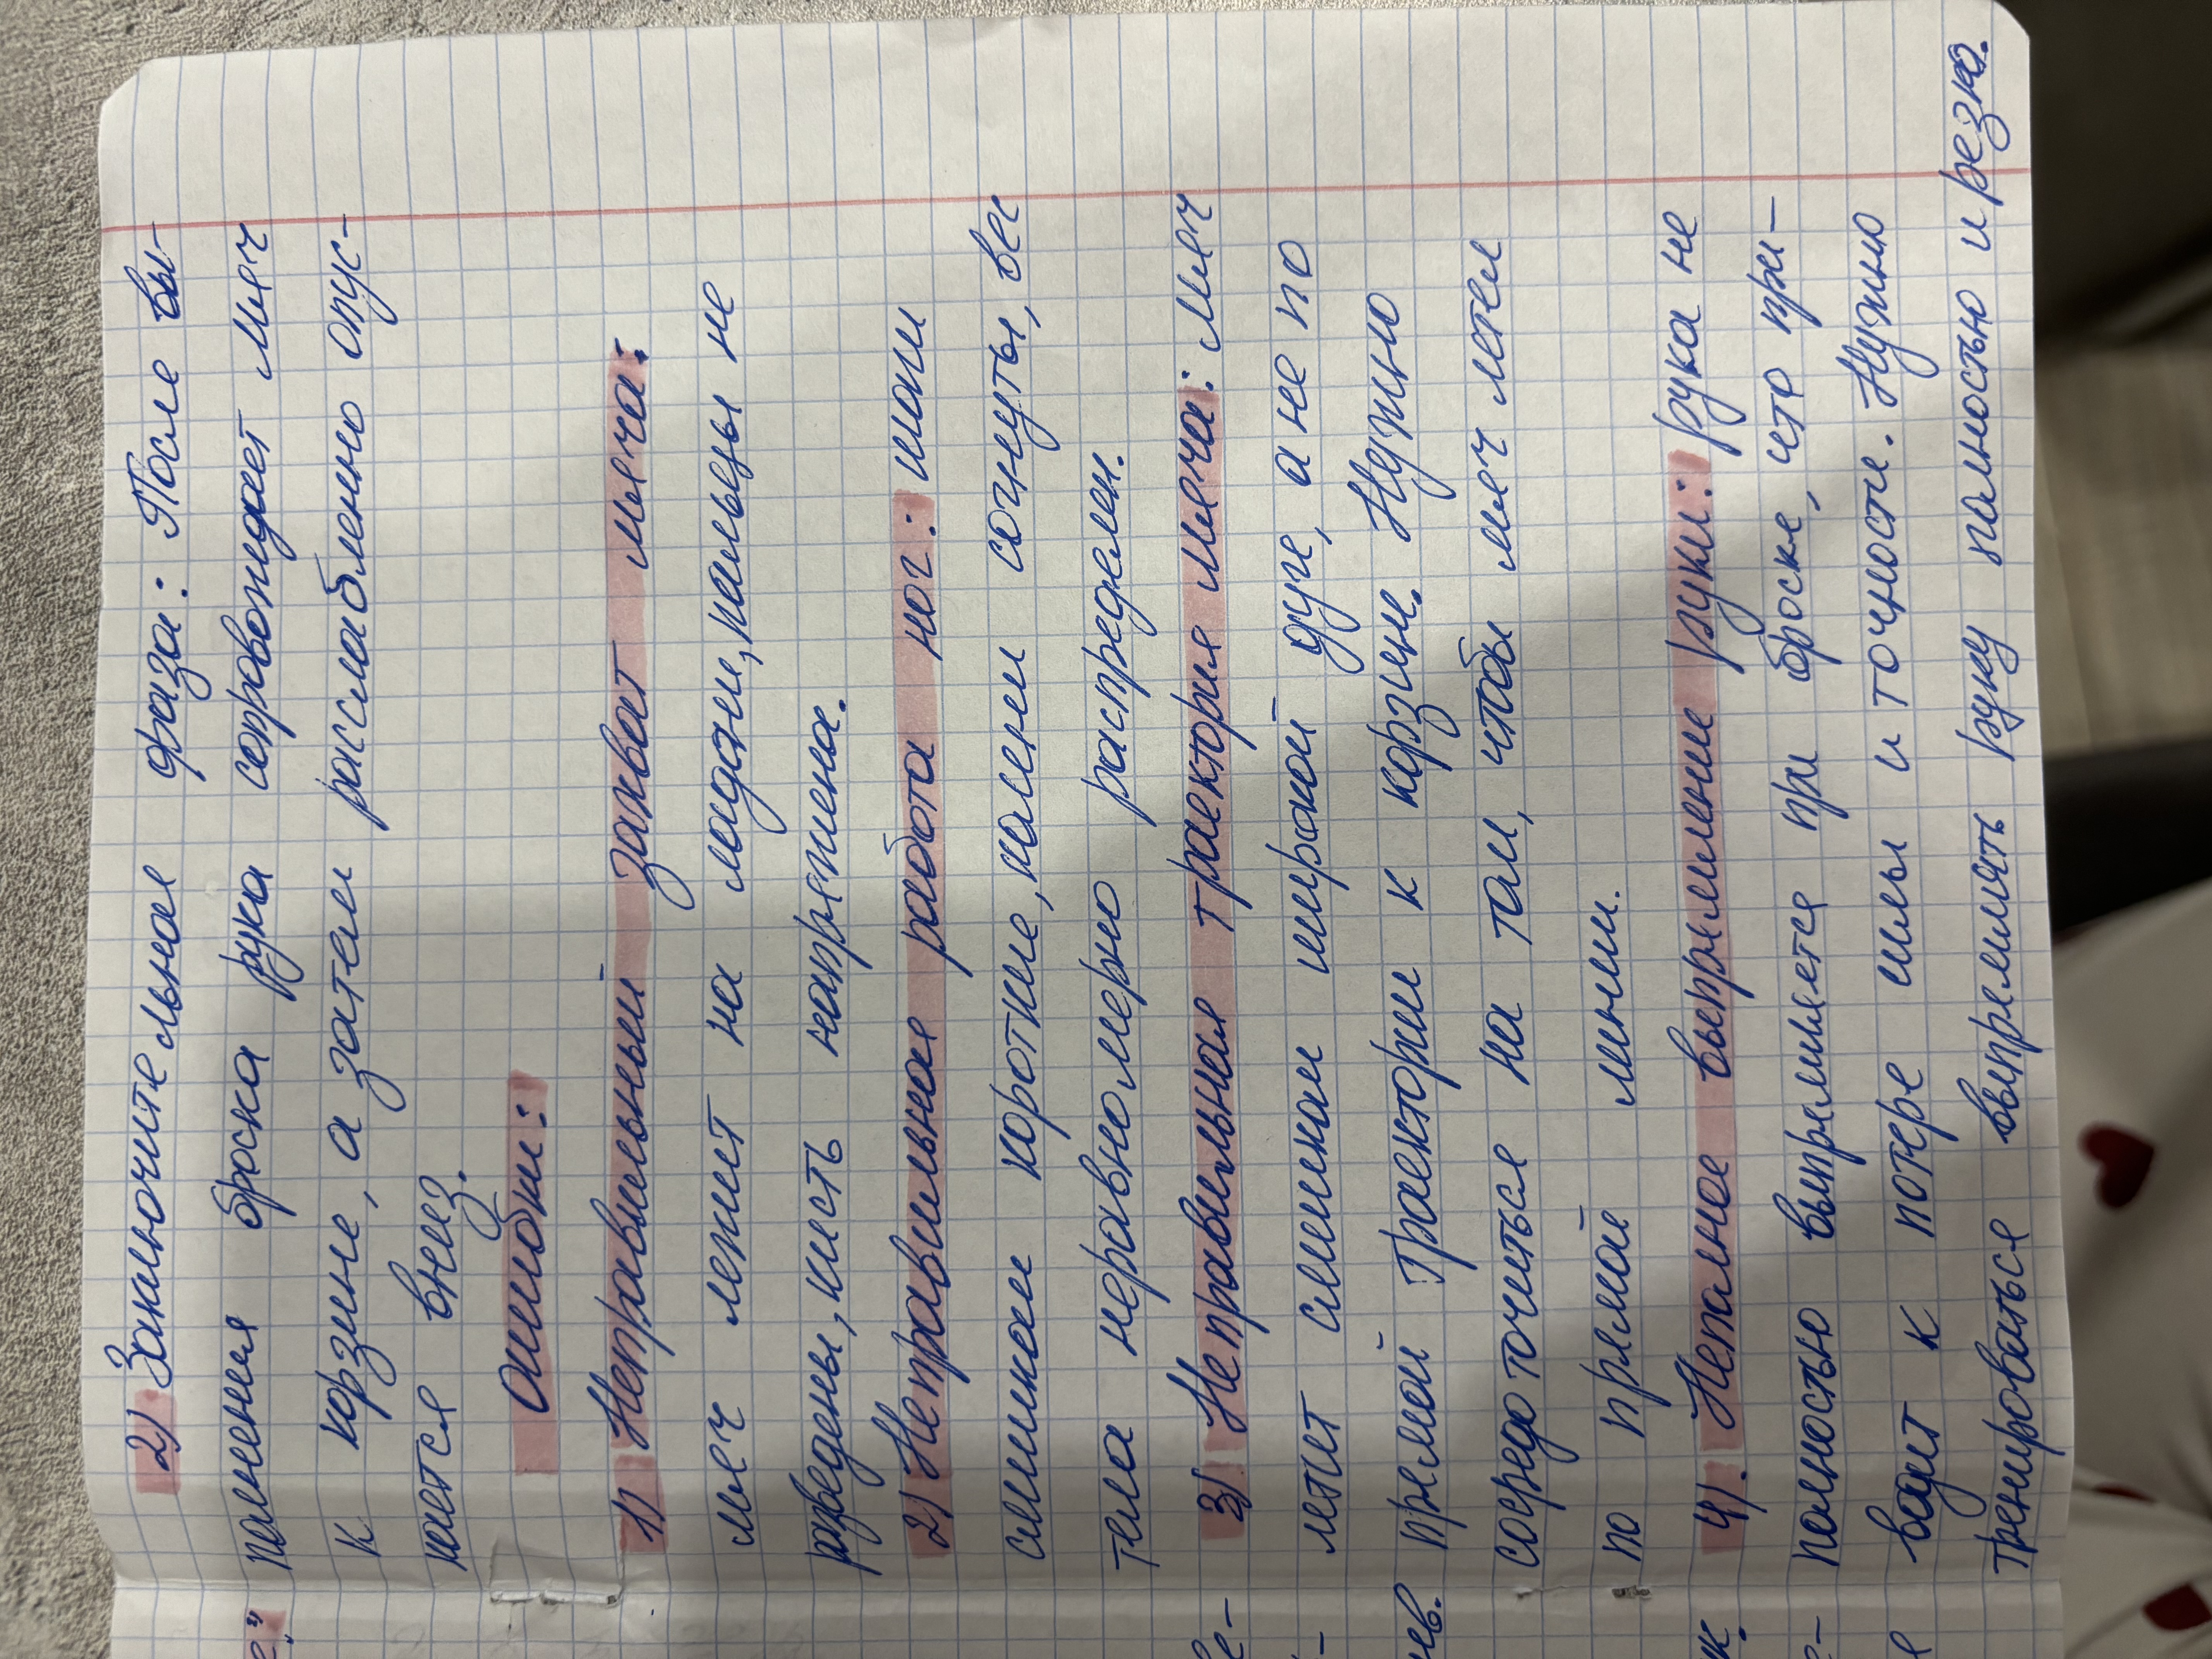 2) Заключительная фаза: После вы-
полнения броска рука сопровождает мяч
к корзине, а затем расслабленно опус-
кается вниз.
Ошибки:
1) Неправильный захват мяча:
мяч лежит на ладони, пальцы не
разведены, кисть напряжена.
2) Неправильная работа ног: шаги
слишком короткие, колени согнуты, вес
тела неравномерно распределен.
3) Неправильная траектория мяча: мяч
летит слишком широкой дуге, а не по
прямой траектории к корзине. Нужно
сосредоточиться на том, чтобы мяч летел
по прямой линии.
4). Неполное выпрямление руки: рука не
полностью выпрямляется при броске, что при-
водит к потере силы и точности. Нужно
тренироваться выпрямлять руку полностью и резко.
е."
е-
-
ев.
ук.
е-
я